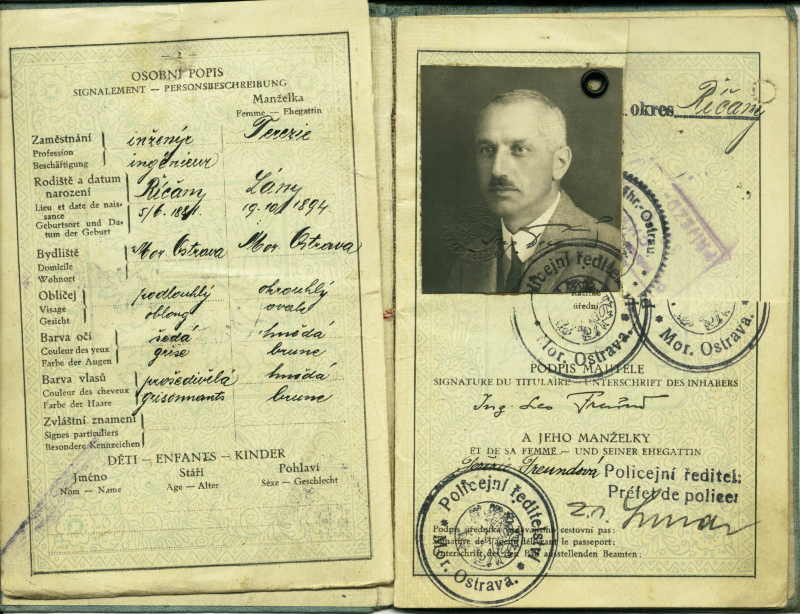 — 2 —
OSOBNÍ POPIS
SIGNALEMENT — PERSONSBESCHREIBUNG
Manželka
Femme — Ehegattin
Zaměstnání
Profession
Beschäftigung
inženýr
ingénieur
Terezie
Rodiště a datum
narození
Lieu et date de nais-
sance
Geburtsort und Da-
tum der Geburt
Říčany
5/6. 1881.
Lány
19/10. 1894
Bydliště
Domicile
Wohnort
Mor Ostrava
Mor Ostrava
Obličej
Visage
Gesicht
podlouhlý
oblong
okrouhlý
ovale
Barva očí
Couleur des yeux
Farbe der Augen
šedá
grise
hnědá
brune
Barva vlasů
Couleur des cheveux
Farbe der Haare
prošedivělá
grisonnants
hnědá
brune
Zvláštní znamení
Signes particuliers
Besondere Kennzeichen
DĚTI — ENFANTS — KINDER
Jméno
Nom — Name
Stáří
Age — Alter
Pohlaví
Sèxe — Geschlecht
okres Říčany
Mähr.-Ostrau.
Policejní ředitel
Mor. Ostrava.
Mor. Ostrava.
úřední
PODPIS MAJITELE
SIGNATURE DU TITULAIRE — UNTERSCHRIFT DES INHABERS
Ing. Leo Freund
A JEHO MANŽELKY
ET DE SA FEMME — UND SEINER EHEGATTIN
Terezie Freundová
Policejní ředitel:
Préfet de police:
Policejní ředitelství
Mor. Ostrava.
Podpis úředníka cestovní pas:
Signature de l'agent délivrant le passeport:
Unterschrift des den Paß ausstellenden Beamten: